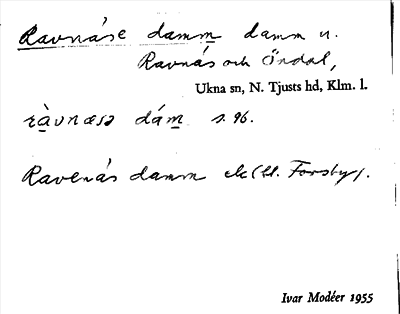 Ravnåse damm damm n.
Ravnås och Öndal,
Ukna sn, N. Tjusts hd, Klm. l.
ràvnæsə dám s. 96.
Ravenäs damm ek (bl. Forsby).
Ivar Modéer 1955